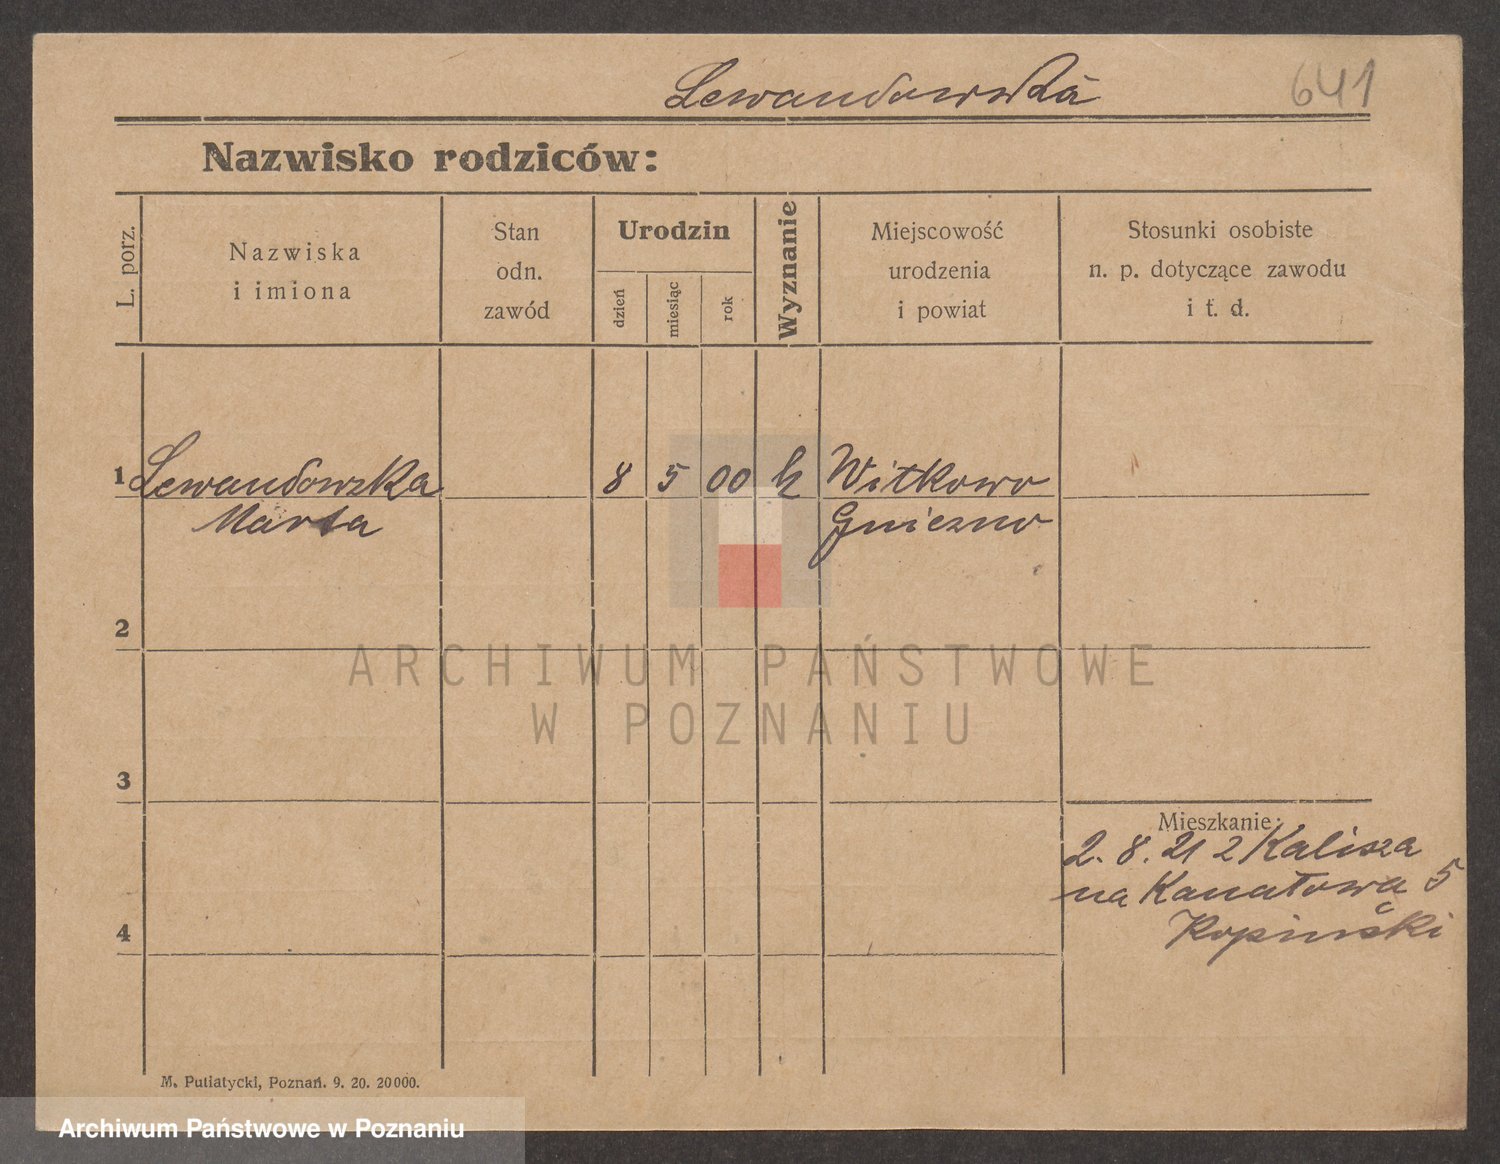 Lewandowska
641
Nazwisko rodziców:
L. porz.
Nazwiska
i imiona
Stan
odn.
zawód
Urodzin
dzień
miesiąc
rok
Wyznanie
Miejscowość
urodzenia
i powiat
Stosunki osobiste
n. p. dotyczące zawodu
i t. d.
1 Lewandowska 8 5 00 k Witkowo
Marta Gniezno
2
3
4
Mieszkanie:
2. 8. 21 z Kalisza
na Kanałową 5
Kopiński
M. Putiatycki, Poznań. 9. 20. 20000.
ARCHIWUM PAŃSTWOWE
W POZNANIU
Archiwum Państwowe w Poznaniu